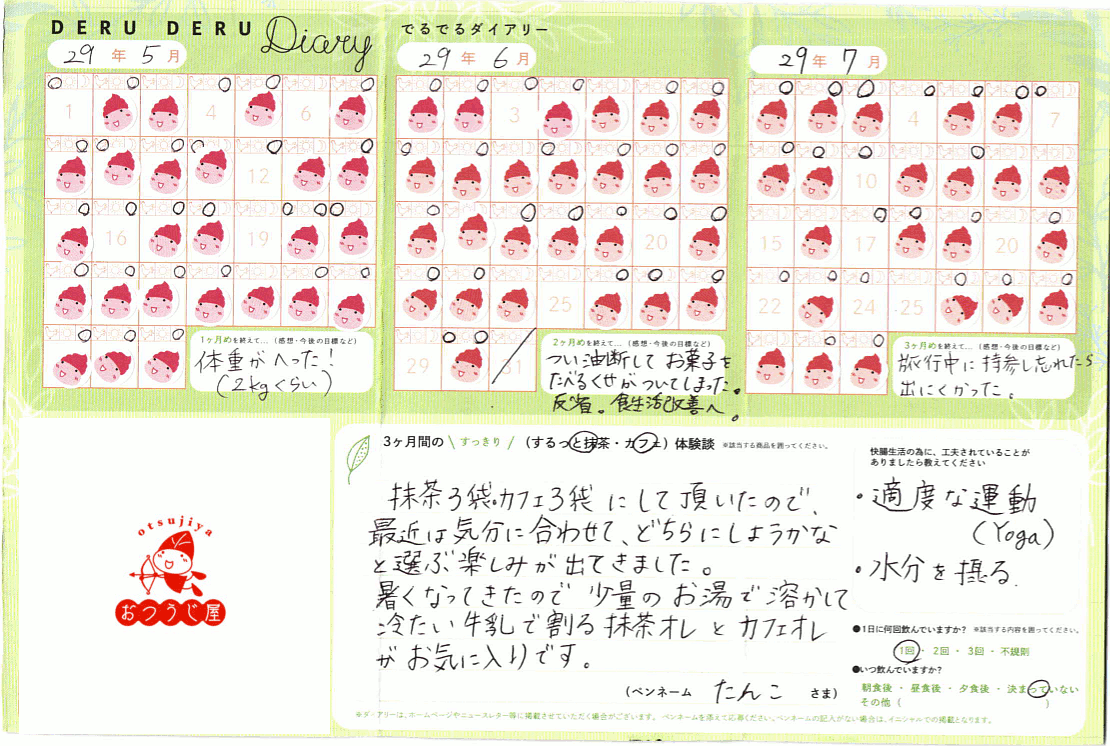 DERU DERU Diary でるでるダイアリー
29年 5月
29年 6月
29年 7月
1 4 6
12
16 19
3
20
25
29 31
4 7
10
15 17 20
22 24 25
1ヶ月めを終えて…（感想・今後の目標など）
体重がへった！
（2kgくらい）
2ヶ月めを終えて…（感想・今後の目標など）
つい油断してお菓子を
たべるくせがついてしまった。
反省。食生活改善へ。
3ヶ月めを終えて…（感想・今後の目標など）
旅行中に持参し忘れたら
出にくかった。
3ヶ月間の \ すっきり / （するっと抹茶・カフェ）体験談 ※該当する商品を囲ってください。
抹茶3袋・カフェ3袋にして頂いたので、
最近は気分に合わせて、どちらにしようかな
と選ぶ楽しみが出てきました。
暑くなってきたので少量のお湯で溶かして
冷たい牛乳で割る抹茶オレとカフェオレ
がお気に入りです。
（ペンネーム たんこ さま）
快腸生活の為に、工夫されていることが
ありましたら教えてください
・適度な運動
（Yoga）
・水分を摂る.
●1日に何回飲んでいますか？ ※該当する内容を囲ってください。
1回・2回・3回・不規則
●いつ飲んでいますか？
朝食後・昼食後・夕食後・決まっていない
その他（ ）
otsujiya
おつうじ屋
※ダイアリーは、ホームページやニュースレター等に掲載させていただく場合がございます。 ペンネームを添えて応募ください。ペンネームの記入がない場合は、イニシャルでの掲載となります。